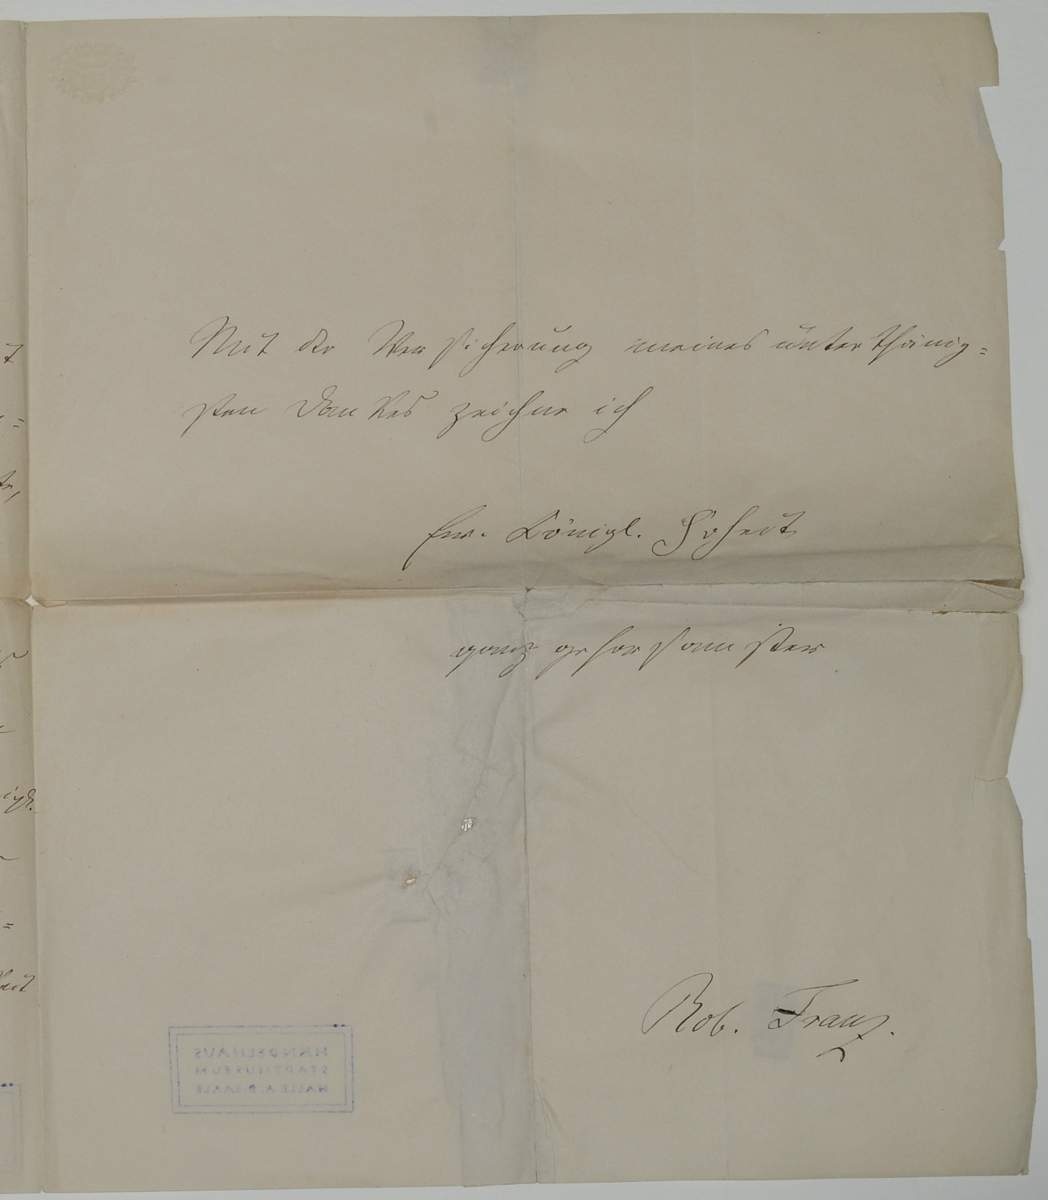 Mit der Versicherung meines unterthänig=
sten Dankes zeichne ich
Ew. Königl. Hoheit
ganz gehorsamster
Rob. Franz.
HÄNDELHAUS
STADTMUSEUM
HALLE A. D. SAALE